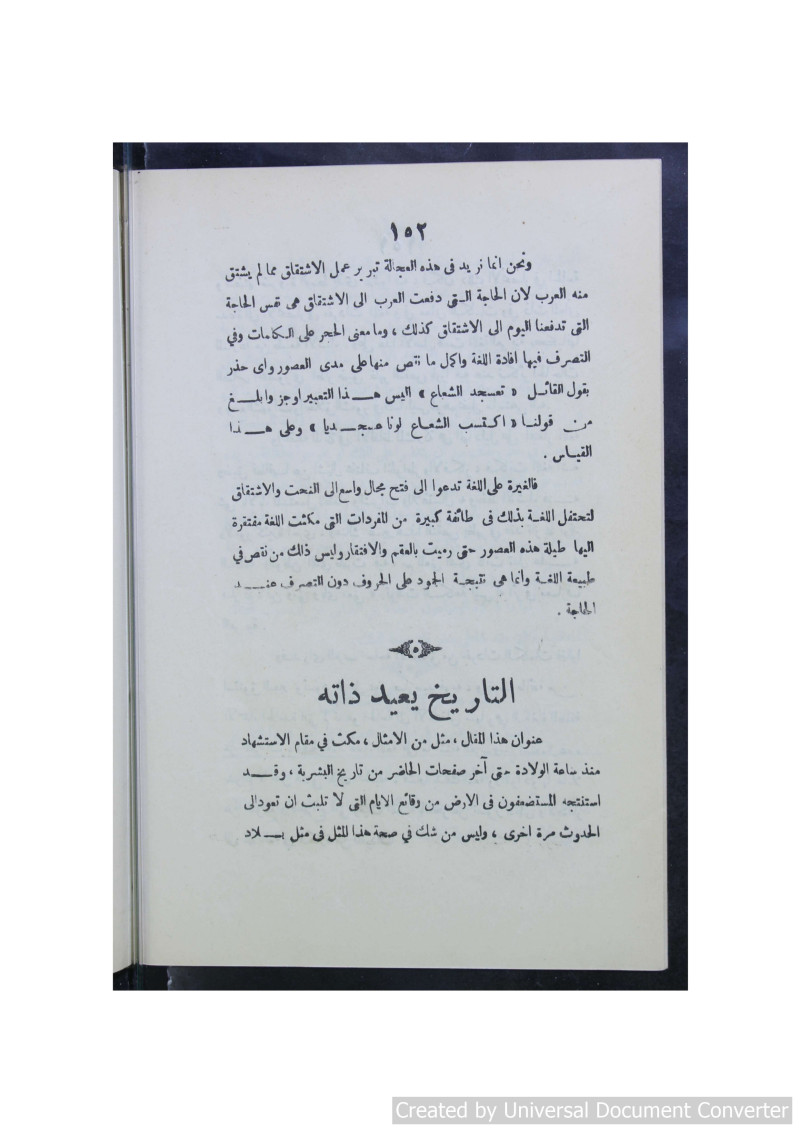 ١٥٢
ونحن انما نريد فى هذه العجالة تبرير عمل الاشتقاق مما لم يشتق
منه العرب لان الحاجة التى دفعت العرب الى الاشتقاق هى نفس الحاجة
التى تدفعنا اليوم الى الاشتقاق كذلك ، وما معنى الحجر على الكلمات وفي
التصرف فيها افادة اللغة واكمل ما نقص منها على مدى العصور واى حذر
بقول القائل « تعسجد الشعاع » اليس هذا التعبير اوجز وابلغ
من قولنا « اكتسب الشعاع لونا عسجديا » وعلى هذا
القياس .
فالغيرة على اللغة تدعوا الى فتح مجال واسع الى النحت والاشتقاق
لتحتفل اللغة بذلك فى طائفة كبيرة من المفردات التى مكثت اللغة مفتقرة
اليها طيلة هذه العصور حتى رميت بالعقم والافتقار وليس ذالك من نقص في
طبيعة اللغة وانما هى نتيجة الجمود على الحروف دون التصرف عند
الحاجة .
التاريخ يعيد ذاته
عنوان هذا المقال ، مثل من الامثال ، مكث في مقام الاستشهاد
منذ ساعة الولادة حتى آخر صفحات الحاضر من تاريخ البشرية ، وقد
استنتجه المستضعفون فى الارض من وقائع الايام التى لا تلبث ان تعود الى
الحدوث مرة اخرى ، وليس من شك في صحة هذا المثل فى مثل بلاد
Created by Universal Document Converter